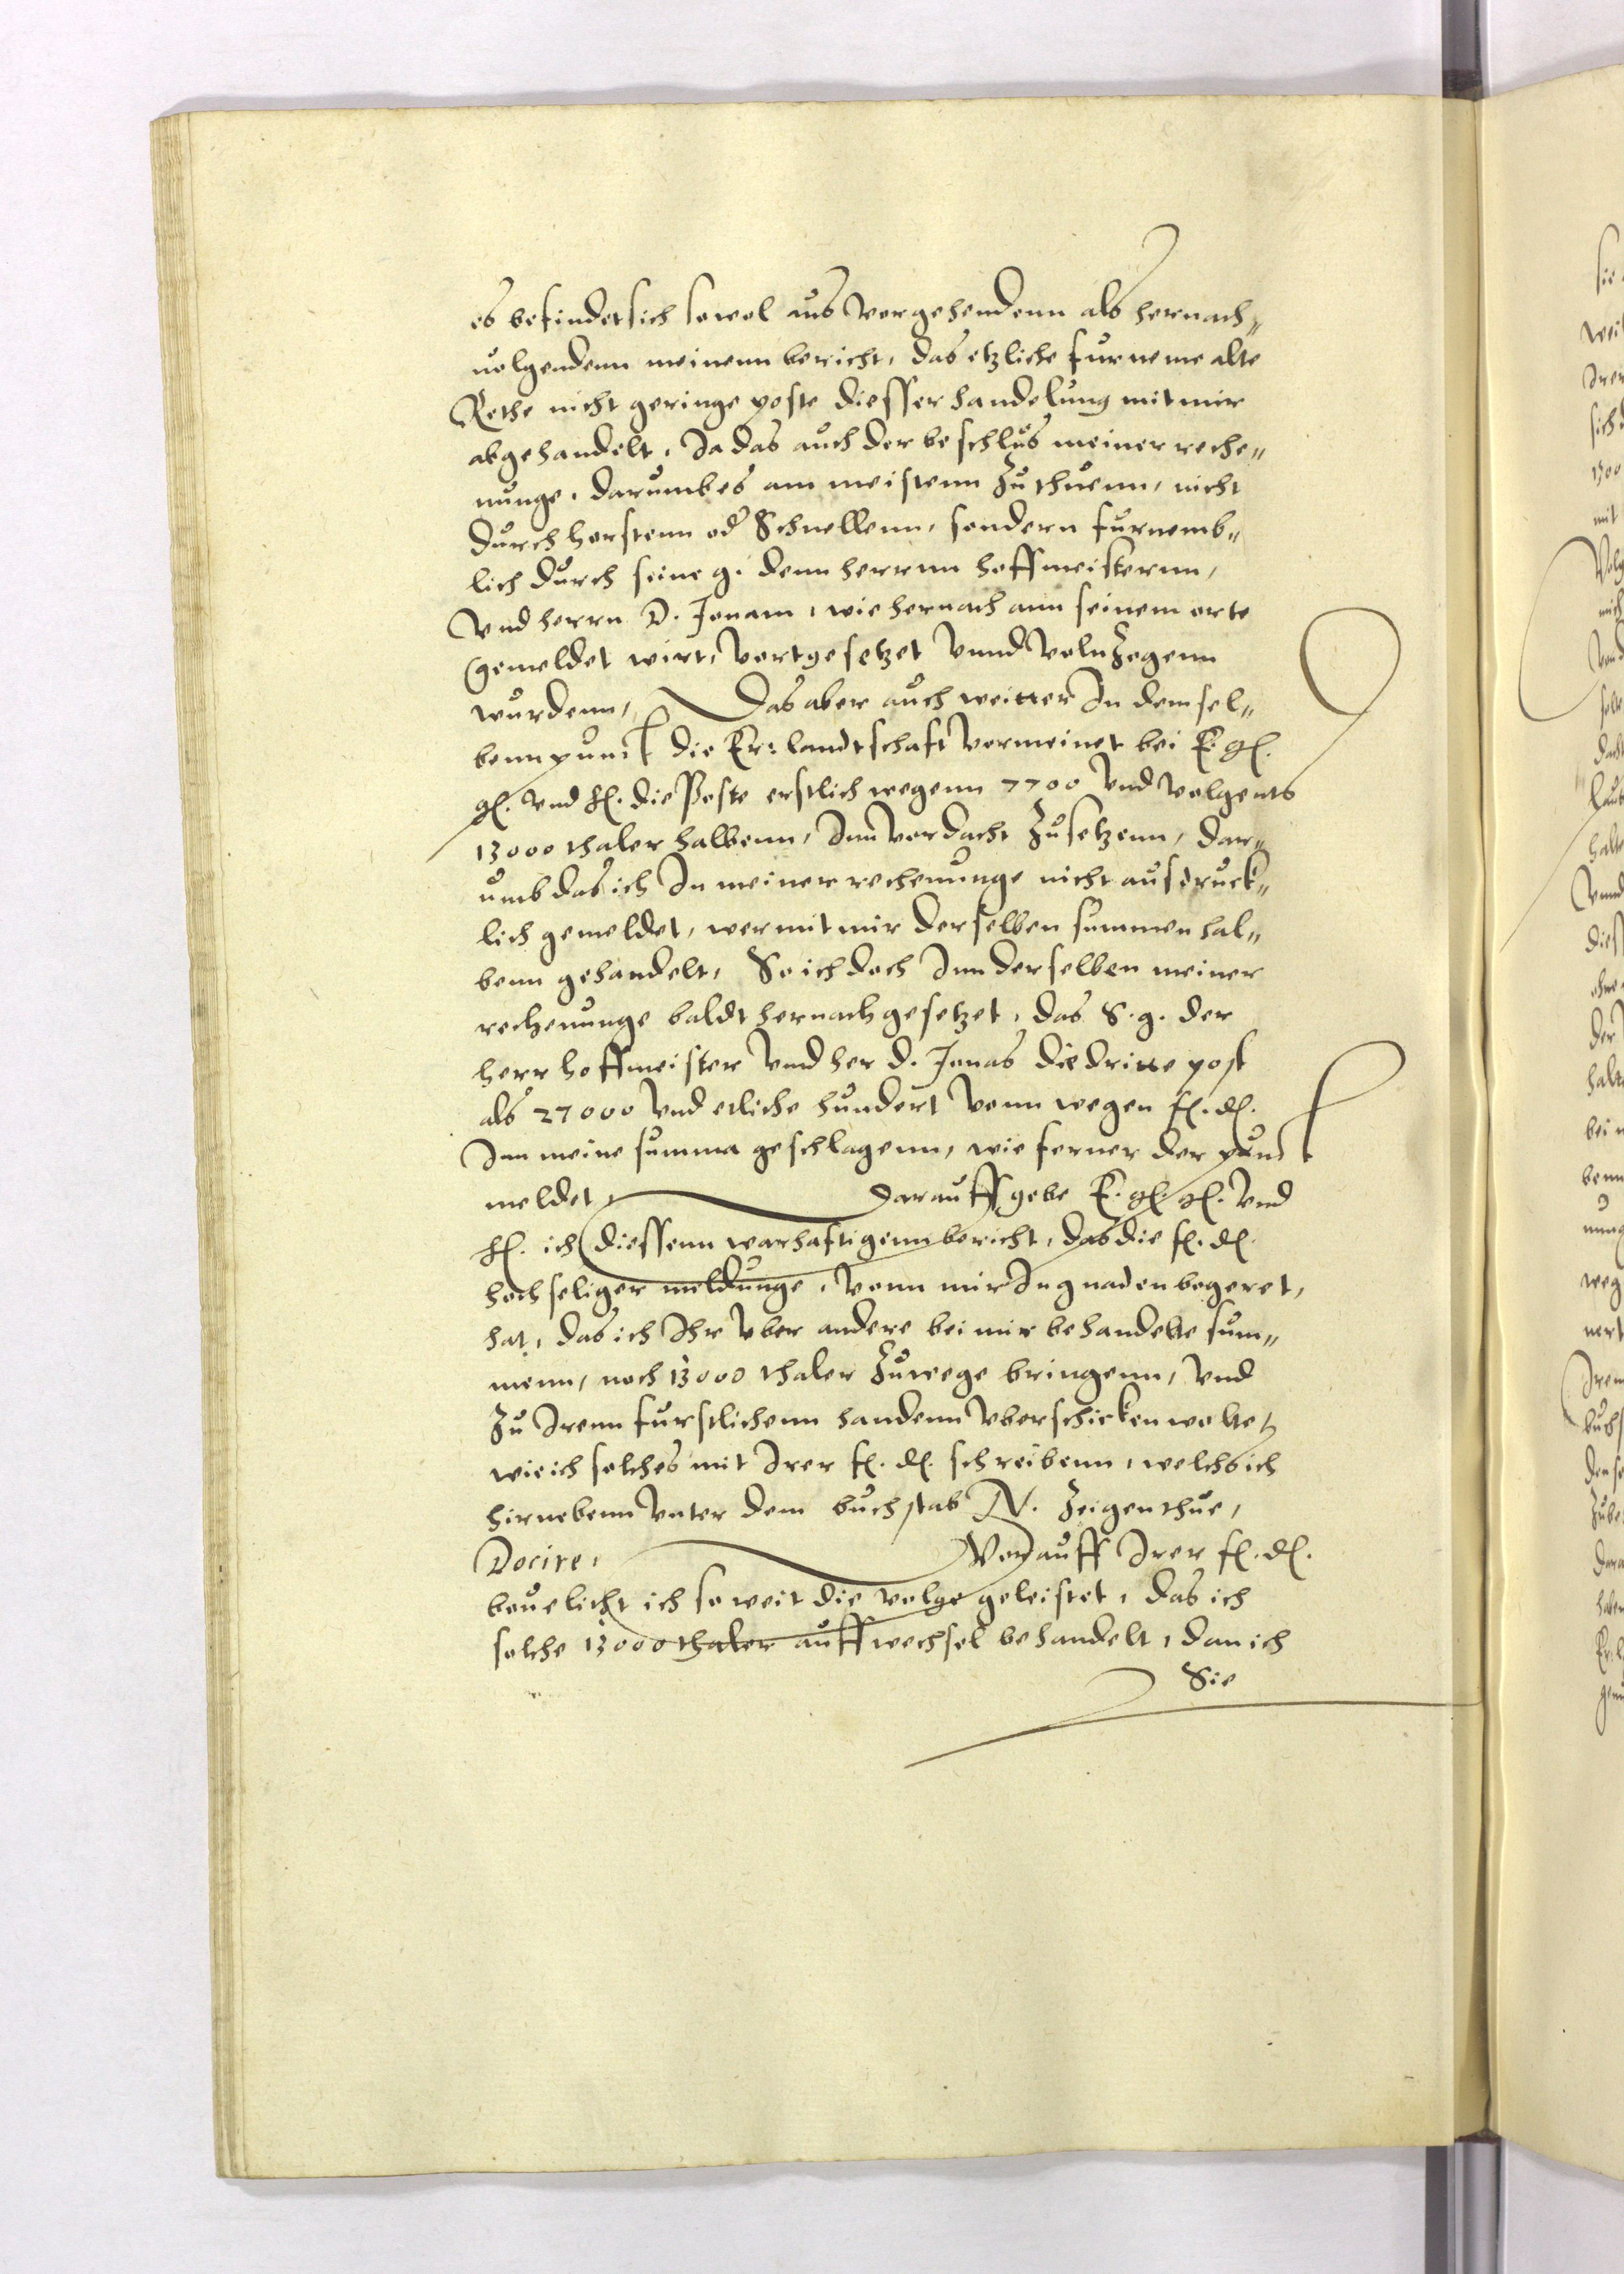 es befindet sich sowol aus vorgehendenn als hernach„
uolgendenn meinenn bericht, das etzliche furneme alte
Rethe nicht geringe poste diesser handelung mit mir
abgehandelt, Ja das auch der beschlus meiner reche„
nunge, darumb es am meistenn zu thuenn, nicht
durch horstenn od Schnellenn, sondern furnemb„
lich durch seine g. denn herrnn hoffmeisternn,
Vnd herrn D. Jonam, wie hernach ann seinem orte
gemeldet wirt, vortgesetzet vnnd volnzogenn
wurdenn, Das aber auch weitter In demsel„
benn punct die Er: landtschaft vermeinet bei E. gl.
gl. vnd fl. die Poste erstlich wegenn 7700 vnd volgents
13000 thaler halbenn, Inn verdacht zusetzenn, dar„
umb das ich In meiner rechenunge nicht ausdruck„
lich gemeldet, wer mit mir derselben summen hal„
benn gehandelt, So ich doch Inn derselben meiner
rechenunge baldt hernach gesetzet, das S. g. der
herr hoffmeister vnd her d. Jonas die dritte post
als 27000 vnd etliche hundert vonn wegen fl. dl.
Inn meine summa geschlagenn, wie ferner der punct
meldet, Darauff gebe E. gl. gl. vnd
fl. ich diessenn warhaftigenn bericht, das die fl. dl.
hochseliger meldunge, vonn mir In gnaden begeret,
hat, das ich Ihr vber andere bei mir behandelte sum„
menn, noch 13000 thaler zuwege bringenn, vnd
zu Irenn furstlichenn handenn vberschicken wolte,
wie ich solches mit Irer fl. dl. schreibenn, welchs ich
hirnebenn vnter dem buchstab N. zeigen thue,
Docire, Vorauff Irer fl. dl.
beuelicht ich so weit die volge geleistet, das ich
solche 13000 thaler auff wechsel behandelt, dan ich
Sie